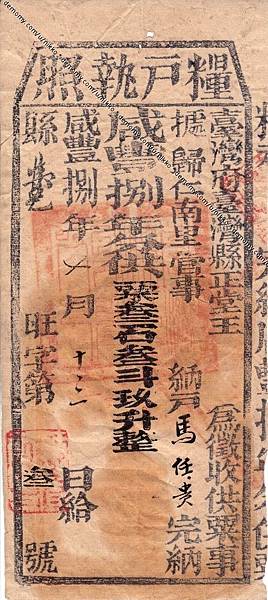 糧戶執照
臺灣府臺灣縣正堂王 為徵收供粟事
據歸仁南里管事 納戶馬任貴完納
咸豐捌年分供
粟叁石叁斗玖升整
咸豐捌年 月十二日給
縣 旺字第叁號